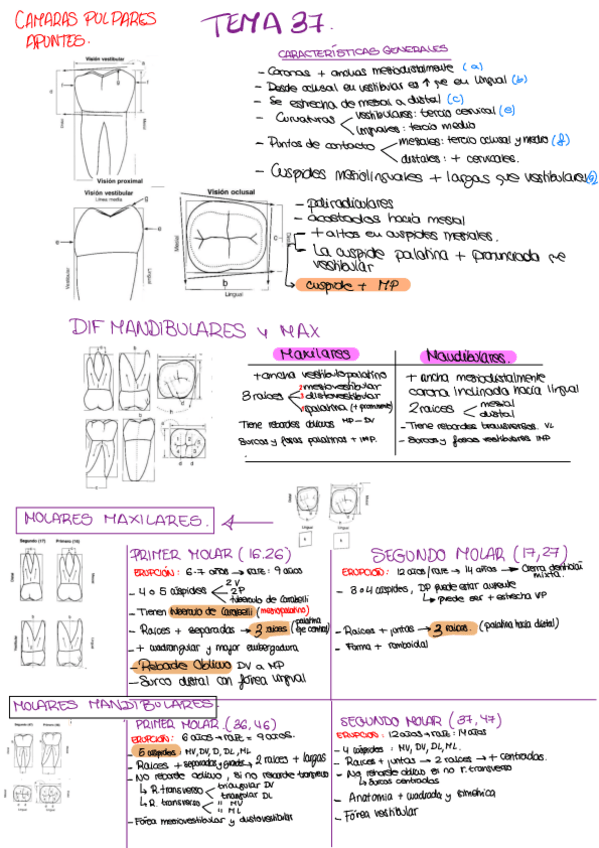 CAMARAS PULPARES
APUNTES.
TEMA 37.
CARACTERÍSTICAS GENERALES
- Coronas + anchas mesiodistalmente (a)
- Desde oclusal en vestibular es ↑ que en lingual (b)
- Se estrecha de mesial a distal (c)
- Curvaturas
vestibulares: tercio cervical (e)
linguales: tercio medio
- Puntos de contacto
mesiales: tercio oclusal y medio (f)
distales: + cervicales.
- Cuspides mesiolinguales + largas que vestibulares (g)
Visión vestibular
Visión proximal
Visión vestibular
Línea media
Vestibular
Lingual
Visión oclusal
Mesial
b
Lingual
- poliradiculares
- acostadas hacia mesial
- + altos en cuspides mesiales.
- La cuspide palatina + pronunciada que
vestibular
cuspide + MP
DIF MANDIBULARES y MAX
Maxilares
+ ancha vestibulo palatino
3 raices
mesiovestibular
distovestibular
palatina (+ prominente)
Tiene rebordes oblicuos MP-DV
Surcos y fosas palatinas + IMP.
Mandibulares.
+ ancha mesiodistalmente
corona inclinada hacia lingual
2 raices
mesial
distal
- Tiene rebordes transversos. VL
- Surcos y fosas vestibulares IMP
MOLARES MAXILARES.
Lingual
Lingual
Segundo (17) Primero (16)
PRIMER MOLAR (16.26)
ERUPCIÓN: 6-7 años → RAIZ: 9 años
- 4 o 5 cúspides
2 V
2 P
tubérculo de Carabelli
- Tienen tubérculo de Carabelli (mesiopalatino)
- Raices + separadas → 3 raices (palatina eje central)
- + cuadrangular y mayor envergadura
- Reborde Oblicuo DV a MP
- Surco distal con fosea lingual
SEGUNDO MOLAR (17,27)
ERUPCIÓN: 12 años / RAIZ → 14 años → Cierra dentición
mixta.
- 3 o 4 cúspides, DP puede estar ausente
↳ puede ser + estrecha VP
- Raices + juntas → 3 raices. (palatina hacia distal)
- Forma + romboidal
MOLARES MANDIBULARES
PRIMER MOLAR (36,46)
ERUPCIÓN: 6 años → RAIZ = 9 años.
- 5 cúspides: MV, DV, D, DL, ML
- Raices + separadas y grandes → 2 raices + largas
- No reborde oblicuo, si no reborde transverso
↳ R. transverso
triangular DV
triangular DL
↳ R. transverso
" MV
" ML
- Fosea mesiovestibular y distovestibular
SEGUNDO MOLAR (37,47)
ERUPCIÓN: 12 años → RAIZ: 14 años
- 4 cúspides: MV, DV, DL, ML.
- Raices + juntas → 2 raices → + centradas.
- No reborde oblicuo si no r. transverso
↳ Surcos centrados
- Anatomia + cuadrada y simetrica
- Fosea vestibular